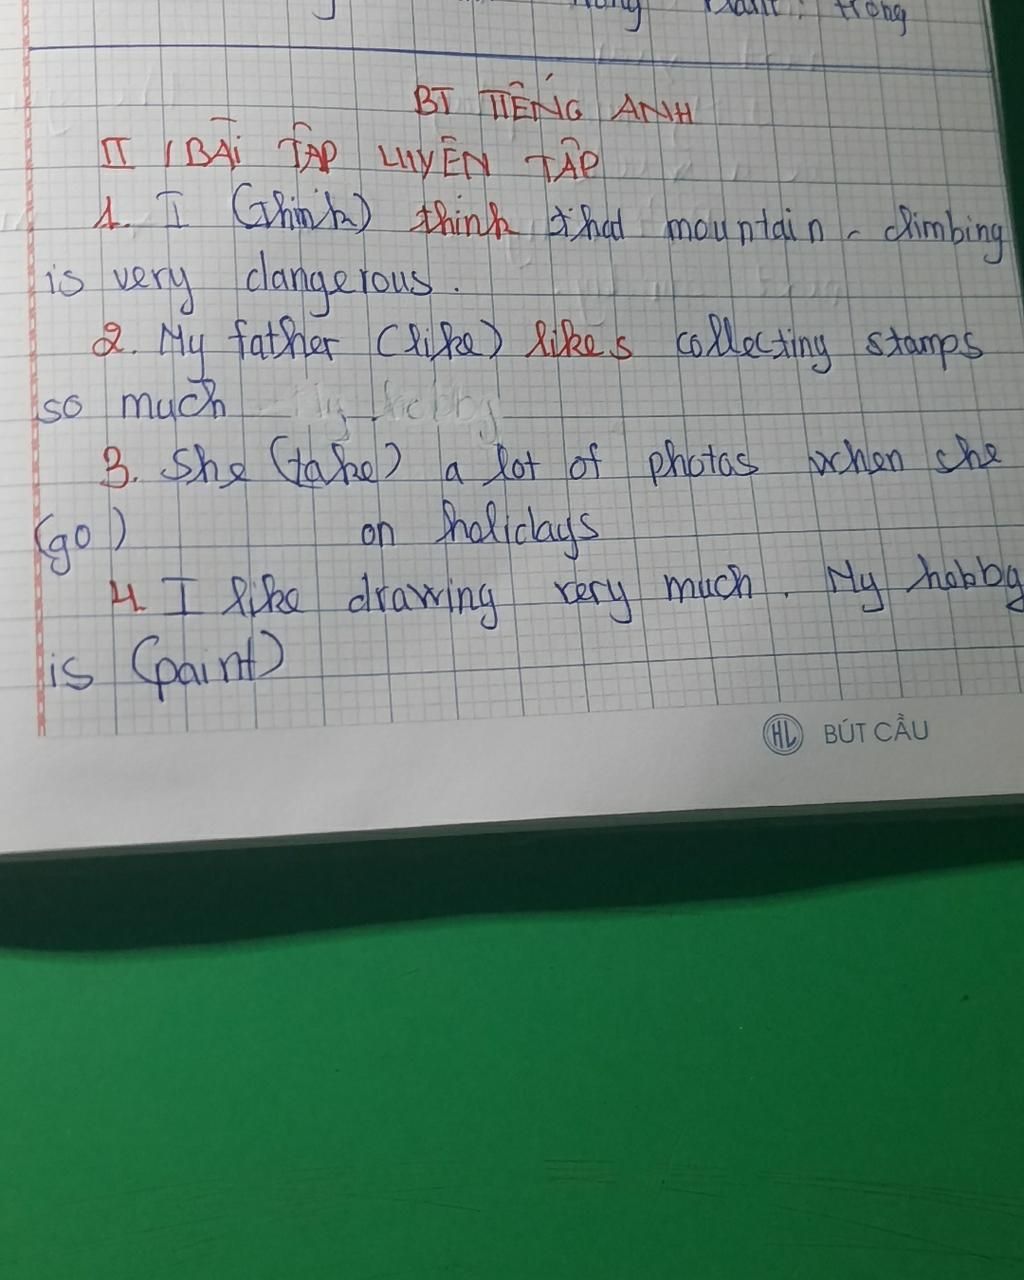 Hồng
BT TIẾNG ANH
II / BÀI TẬP LUYỆN TẬP
1. I (think) think that mountain - climbing
is very dangerous.
2. My father (like) likes collecting stamps
so much
3. She (take) a lot of photos when she
(go) on holidays
4. I like drawing very much. My hobby
is (paint)
HL BÚT CẦU